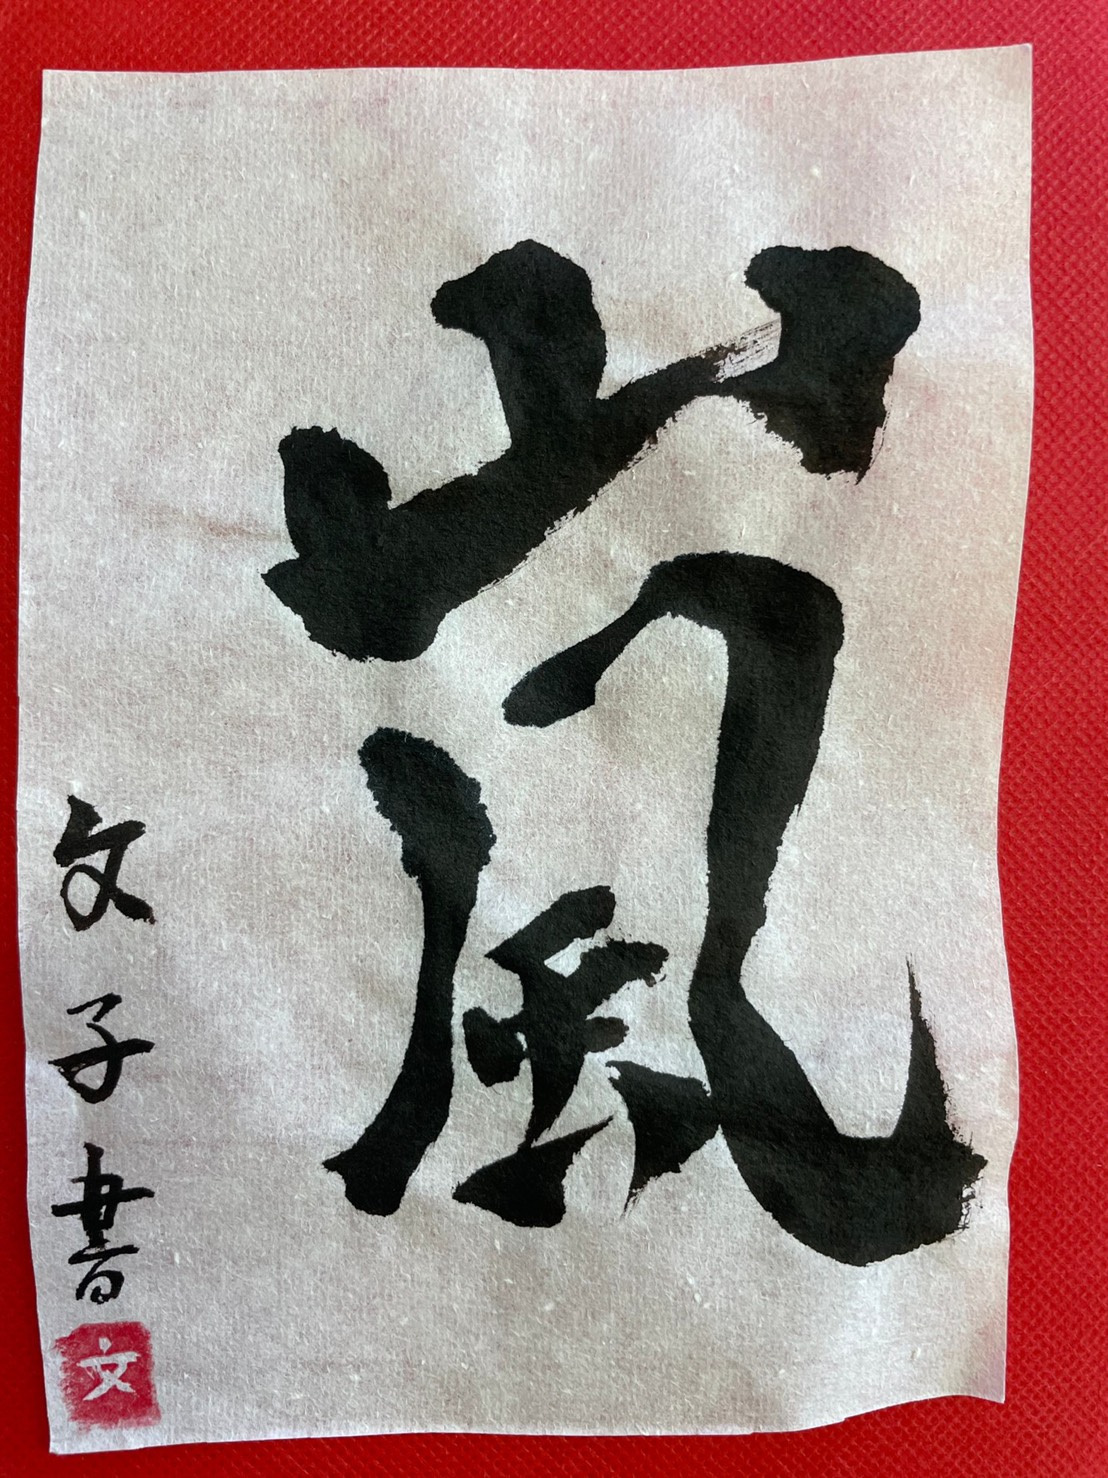 嵐
文子書
文